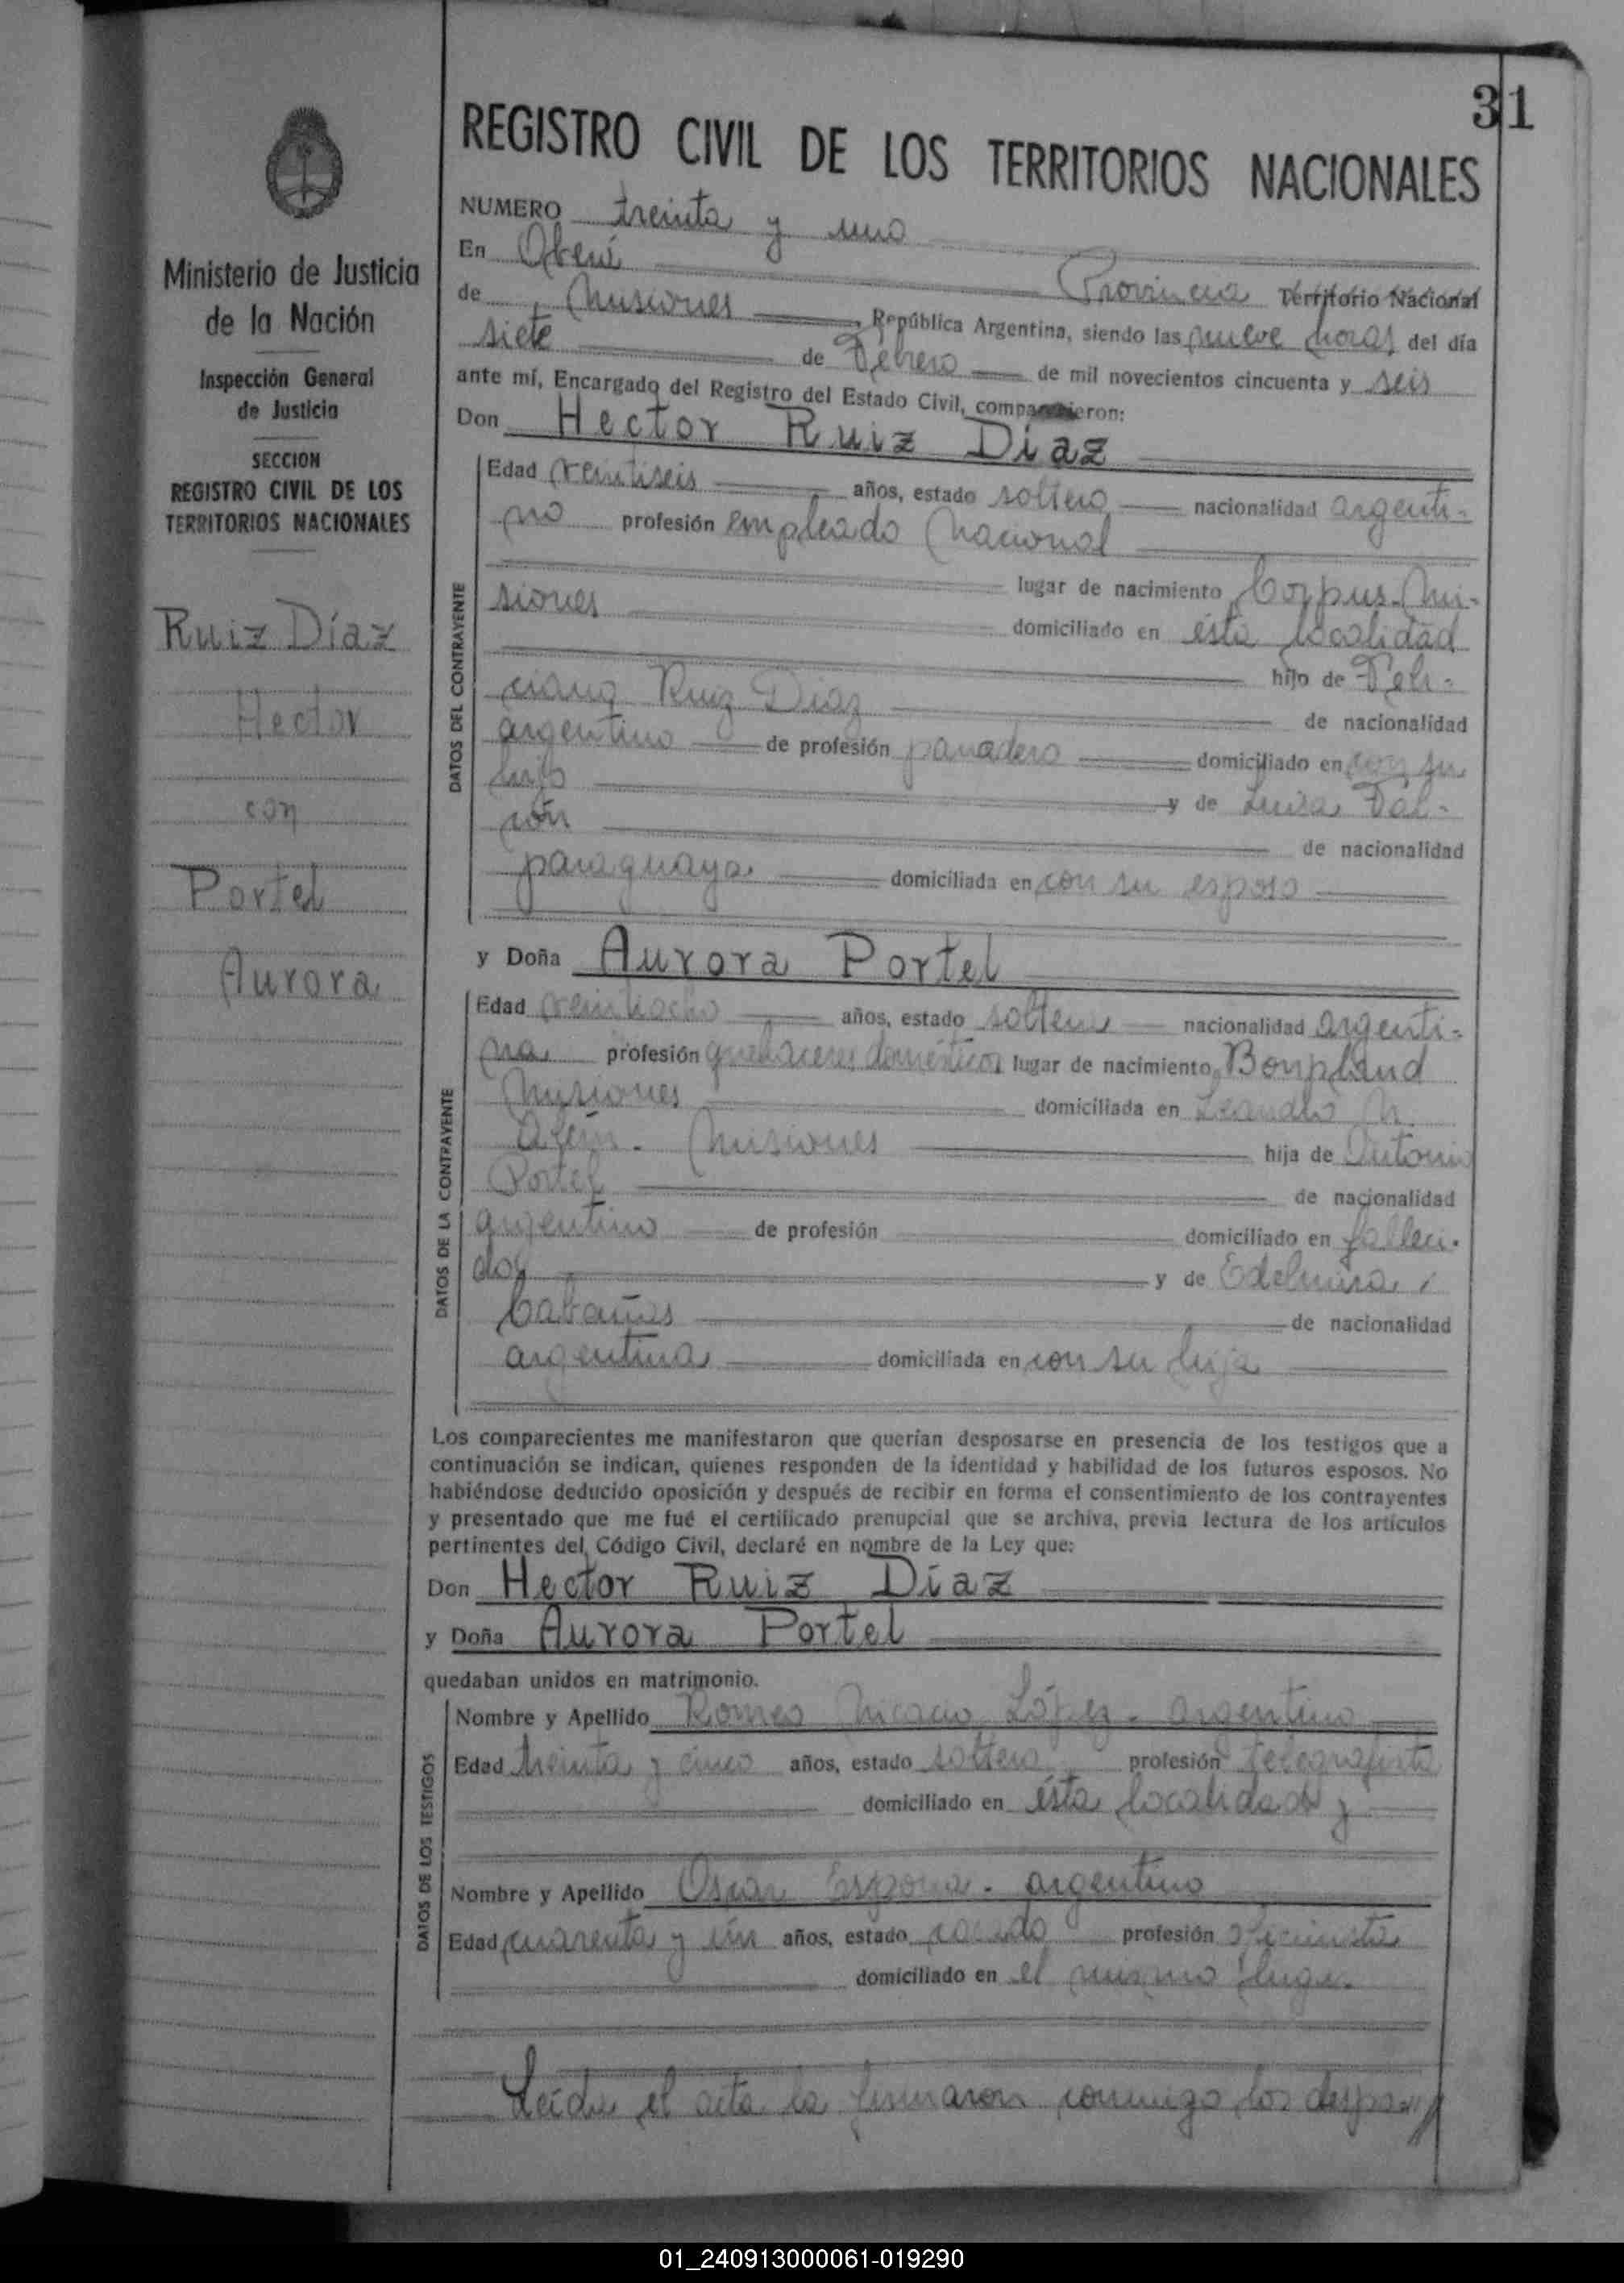 31
REGISTRO CIVIL DE LOS TERRITORIOS NACIONALES
Ministerio de Justicia
de la Nación
Inspección General
de Justicia
SECCION
REGISTRO CIVIL DE LOS
TERRITORIOS NACIONALES
Ruiz Díaz
Hector
con
Portel
Aurora
NUMERO treinta y uno
En Oberá
Provincia Territorio Nacional
de Misiones, República Argentina, siendo las nueve horas del día
siete de Febrero de mil novecientos cincuenta y seis
ante mí, Encargado del Registro del Estado Civil, comparecieron:
Don Hector Ruiz Díaz
DATOS DEL CONTRAYENTE
Edad veintiseis años, estado soltero nacionalidad argenti-
no profesión empleado Nacional
lugar de nacimiento Corpus-Mi-
siones domiciliado en ésta localidad
hijo de Feli-
ciano Ruiz Diaz de nacionalidad
argentino de profesión panadero domiciliado en con su
hijo y de Luisa Fal-
cón de nacionalidad
paraguaya domiciliada en con su esposo
y Doña Aurora Portel
DATOS DE LA CONTRAYENTE
Edad veintiocho años, estado soltera nacionalidad argenti-
na profesión quehaceres domésticos lugar de nacimiento Bonpland
Misiones domiciliada en Leandro N.
Alem. Misiones hija de Antonio
Portel de nacionalidad
argentino de profesión domiciliado en falleci-
do y de Edelmira
Cabañas de nacionalidad
argentina domiciliada en con su hija
Los comparecientes me manifestaron que querían desposarse en presencia de los testigos que a
continuación se indican, quienes responden de la identidad y habilidad de los futuros esposos. No
habiéndose deducido oposición y después de recibir en forma el consentimiento de los contrayentes
y presentado que me fué el certificado prenupcial que se archiva, previa lectura de los artículos
pertinentes del Código Civil, declaré en nombre de la Ley que:
Don Hector Ruiz Díaz
y Doña Aurora Portel
quedaban unidos en matrimonio.
DATOS DE LOS TESTIGOS
Nombre y Apellido Romeo Nicacio López - argentino
Edad treinta y cinco años, estado soltero profesión telegrafista
domiciliado en ésta localidad y
Nombre y Apellido Oscar - argentino
Edad cuarenta y un años, estado casado profesión oficinista
domiciliado en el mismo lugar.
Leída el acta la firmaron conmigo los despo-
01_240913000061-019290